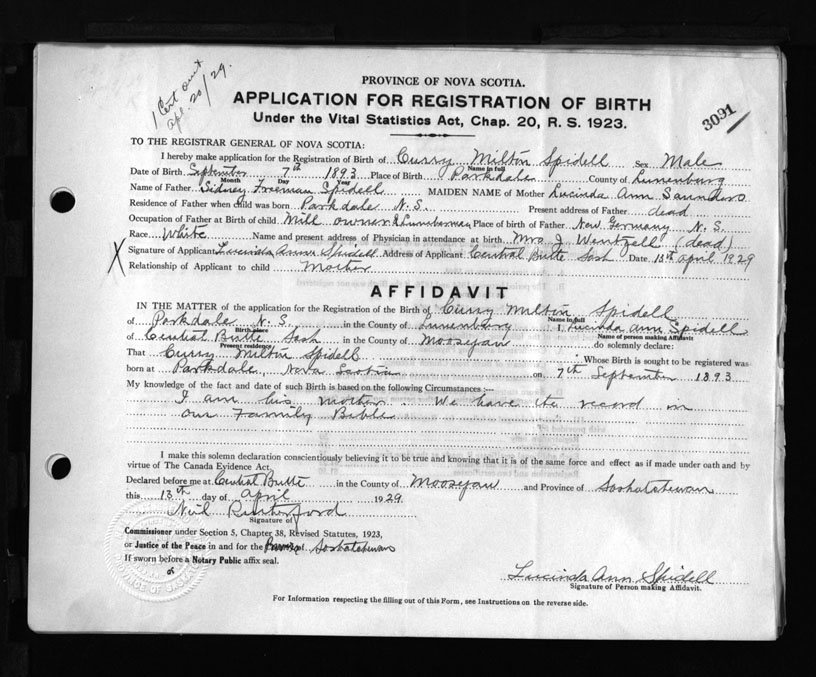 1 Cert out
apl. 20/29.
3091
PROVINCE OF NOVA SCOTIA.
APPLICATION FOR REGISTRATION OF BIRTH
Under the Vital Statistics Act, Chap. 20, R. S. 1923.
TO THE REGISTRAR GENERAL OF NOVA SCOTIA:
I hereby make application for the Registration of Birth of Curry Milton Spidell Sex Male
Name in full
Date of Birth September 7th 1893 Place of Birth Parkdale County of Lunenburg
Month Day Year
Name of Father Sidney Freeman Spidell MAIDEN NAME of Mother Lucinda Ann Saunders
Residence of Father when child was born Parkdale N.S. Present address of Father dead
Occupation of Father at Birth of child Mill owner & Lumberman Place of birth of Father New Germany N. S.
Race White Name and present address of Physician in attendance at birth Mrs J. Wentzell (dead)
X Signature of Applicant Lucinda Ann Spidell Address of Applicant Central Butte Sask Date 13th April 1929
Relationship of Applicant to child Mother
AFFIDAVIT
IN THE MATTER of the application for the Registration of the Birth of Curry Milton Spidell
Name in full
of Parkdale N.S. in the County of Lunenburg I, Lucinda Ann Spidell
Birth place Name of person making Affidavit
of Central Butte Sask in the County of Moosejaw do solemnly declare:
Present residence
That Curry Milton Spidell Whose Birth is sought to be registered was
born at Parkdale, Nova Scotia on 7th September 1893
My knowledge of the fact and date of such Birth is based on the following Circumstances;—
I am his mother. We have the record in
our Family Bible
I make this solemn declaration conscientiously believing it to be true and knowing that it is of the same force and effect as if made under oath and by
virtue of The Canada Evidence Act.
Declared before me at Central Butte in the County of Moosejaw and Province of Saskatchewan
this 13th day of April 1929
Neil Rutherford
Signature of
Commissioner under Section 5, Chapter 38, Revised Statutes, 1923,
or Justice of the Peace in and for the of Saskatchewan
If sworn before a Notary Public affix seal.
Lucinda Ann Spidell
Signature of Person making Affidavit.
For Information respecting the filling out of this Form, see Instructions on the reverse side.